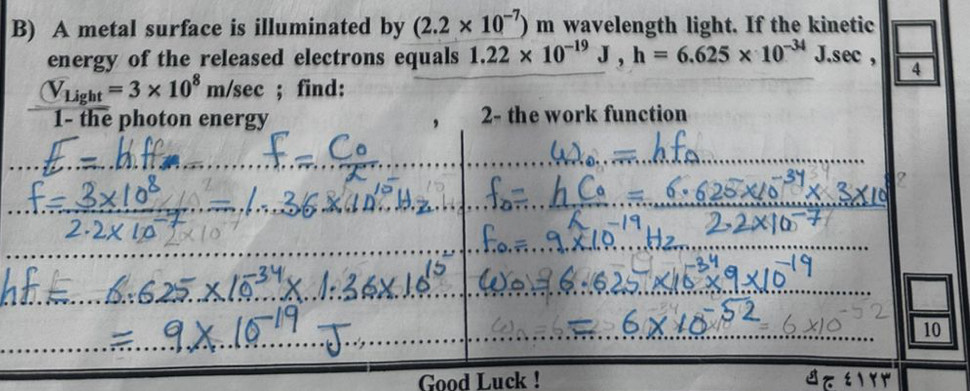 B) A metal surface is illuminated by (2.2 × 10⁻⁷) m wavelength light. If the kinetic
energy of the released electrons equals 1.22 × 10⁻¹⁹ J , h = 6.625 × 10⁻³⁴ J.sec ,
V_Light = 3 × 10⁸ m/sec ; find:
4
1- the photon energy , 2- the work function
E = hf f = C₀/λ
f = 3×10⁸ / 2.2×10⁻⁷ = 1.36×10¹⁵ Hz
hf = 6.625×10⁻³⁴ × 1.36×10¹⁵
= 9×10⁻¹⁹ J
ω₀ = hf₀
f₀ = hC₀/λ = 6.625×10⁻³⁴ × 3×10⁸ / 2.2×10⁻⁷
f₀ = 9×10⁻¹⁹ Hz
ω₀ = 6.625×10⁻³⁴ × 9×10⁻¹⁹
= 6×10⁻⁵² = 6×10⁻⁵²
10
Good Luck !
٤١٢٣ ج ك